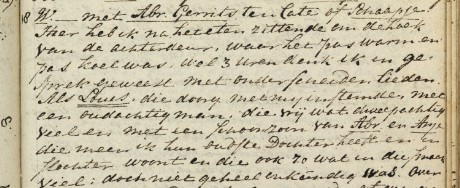 8 W. — met Abr. Gerrits ten Cate of Schaapje.
Hier heb ik na het eten zittende in de hoek
van de achterdeur, waar het pas warm en
pas koel was, wel 3 uren denk ik in ge
sprek geweest met onderscheeden lieden
Als Louws, die doorg met my instemde, met
een oudachtig man, die vrij wat dweepachtig
veel en met een schoonzoon van Abr. en Antje
die meen ik hun oudste Dochter heeft en in
Slochter woont en die ook zo wat in die
viel: doch niet geheel eenkendig was. Over
8.